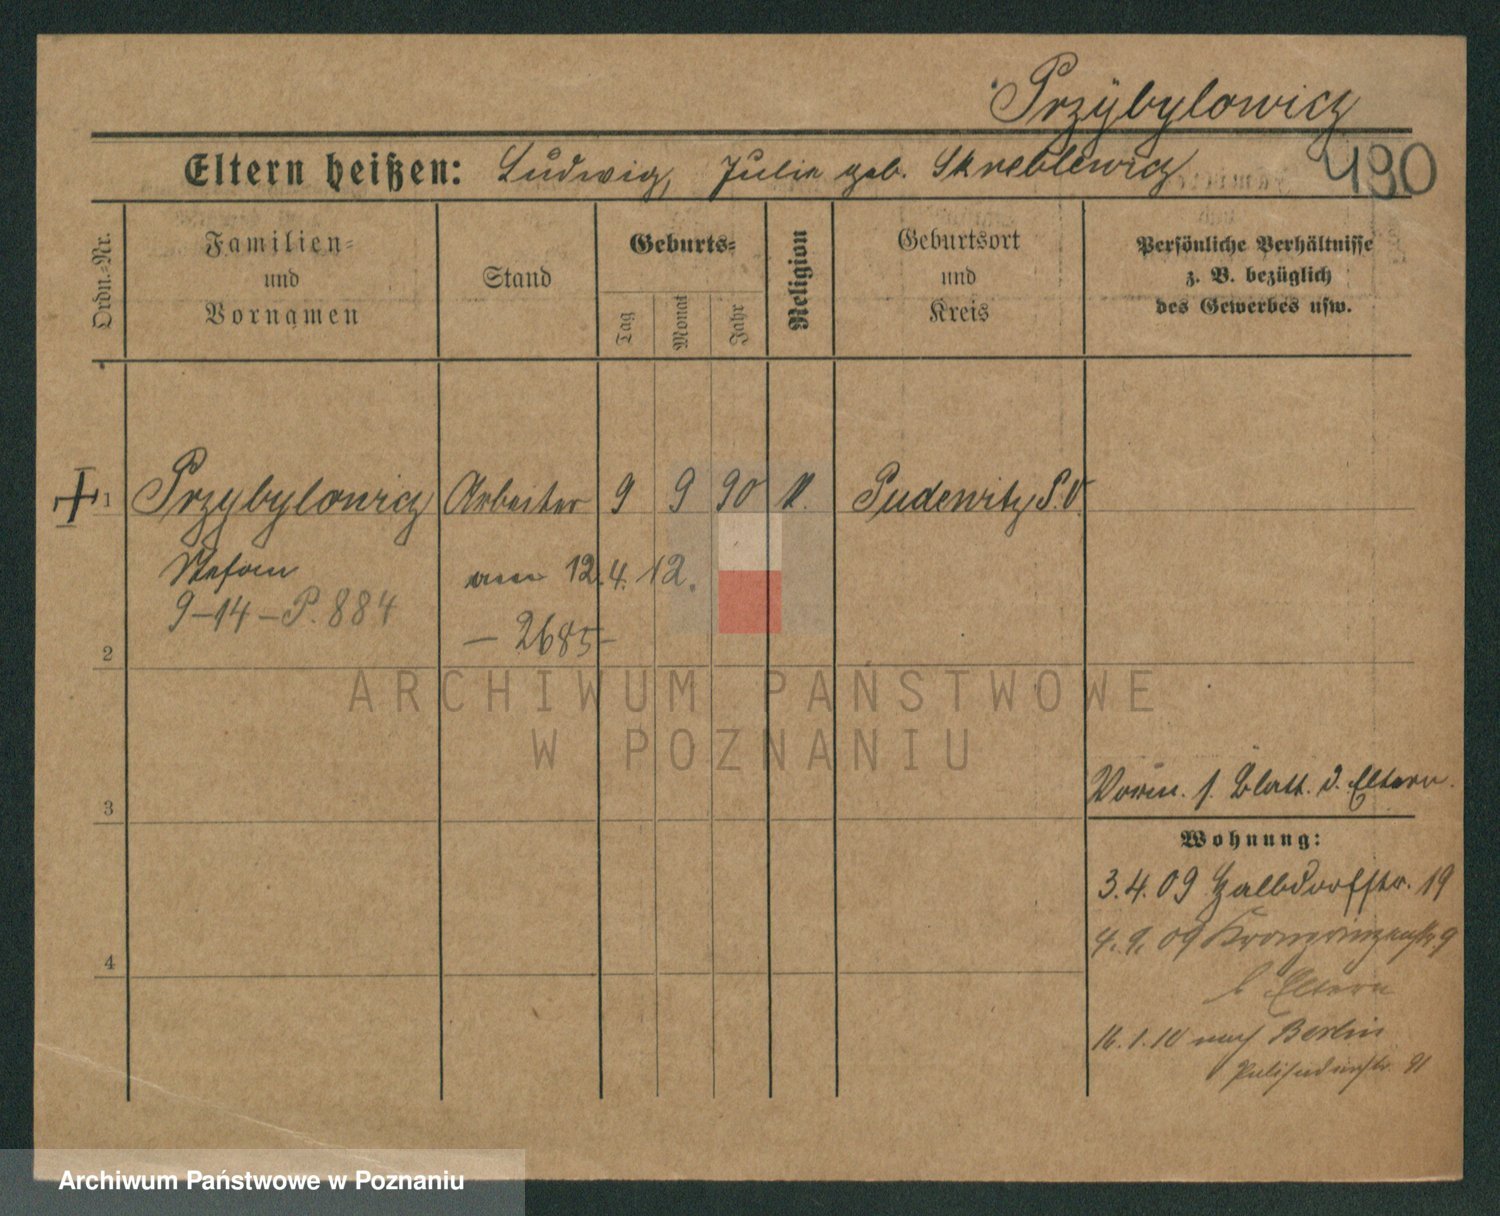 Przybylowicz
Eltern heißen: Ludwig, Julie geb. Skreblewicz
490
Ordn.=Nr.
Familien=
und
Vornamen
Stand
Geburts=
Tag
Monat
Jahr
Religion
Geburtsort
und
Kreis
Persönliche Verhältnisse
z. B. bezüglich
des Gewerbes usw.
1 Przybylowicz Arbeiter 9 9 90 K. Pudewitz P.O.
Stefan am 12.4.12.
9-14-P.884
- 2685-
2
ARCHIWUM PAŃSTWOWE
W POZNANIU
Vorm. s. Blatt d. Eltern.
3
Wohnung:
3.4.09 19
4.9.09 Kronprinzenstr 9
4
b Eltern
16.1.10 nach Berlin
91
Archiwum Państwowe w Poznaniu